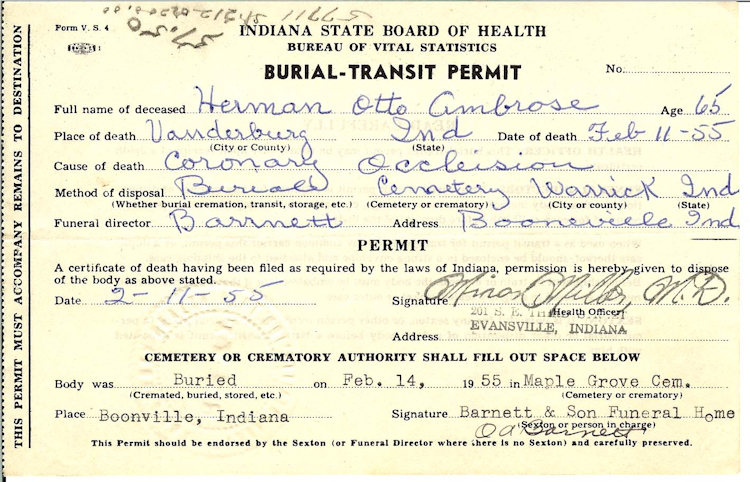 Form V. S. 4
INDIANA STATE BOARD OF HEALTH
BUREAU OF VITAL STATISTICS
BURIAL-TRANSIT PERMIT
No.
Full name of deceased Herman Otto Ambrose Age 65
Place of death Vanderburg Ind Date of death Feb 11-55
(City or County) (State)
Cause of death Coronary Occlusion
Method of disposal Burial Cemetery Warrick Ind
(Whether burial cremation, transit, storage, etc.) (Cemetery or crematory) (City or county) (State)
Funeral director Barrnett Address Booneville Ind
PERMIT
A certificate of death having been filed as required by the laws of Indiana, permission is hereby given to dispose
of the body as above stated.
Date 2-11-55 Signature Minor Miller, M.D.
(Health Officer)
201 S. E.
Address EVANSVILLE, INDIANA
CEMETERY OR CREMATORY AUTHORITY SHALL FILL OUT SPACE BELOW
Body was Buried on Feb. 14, 1955 in Maple Grove Cem.
(Cremated, buried, stored, etc.) (Cemetery or crematory)
Place Boonville, Indiana Signature Barnett & Son Funeral Home
(Sexton or person in charge)
O A Barnett
This Permit should be endorsed by the Sexton (or Funeral Director where there is no Sexton) and carefully preserved.
THIS PERMIT MUST ACCOMPANY REMAINS TO DESTINATION